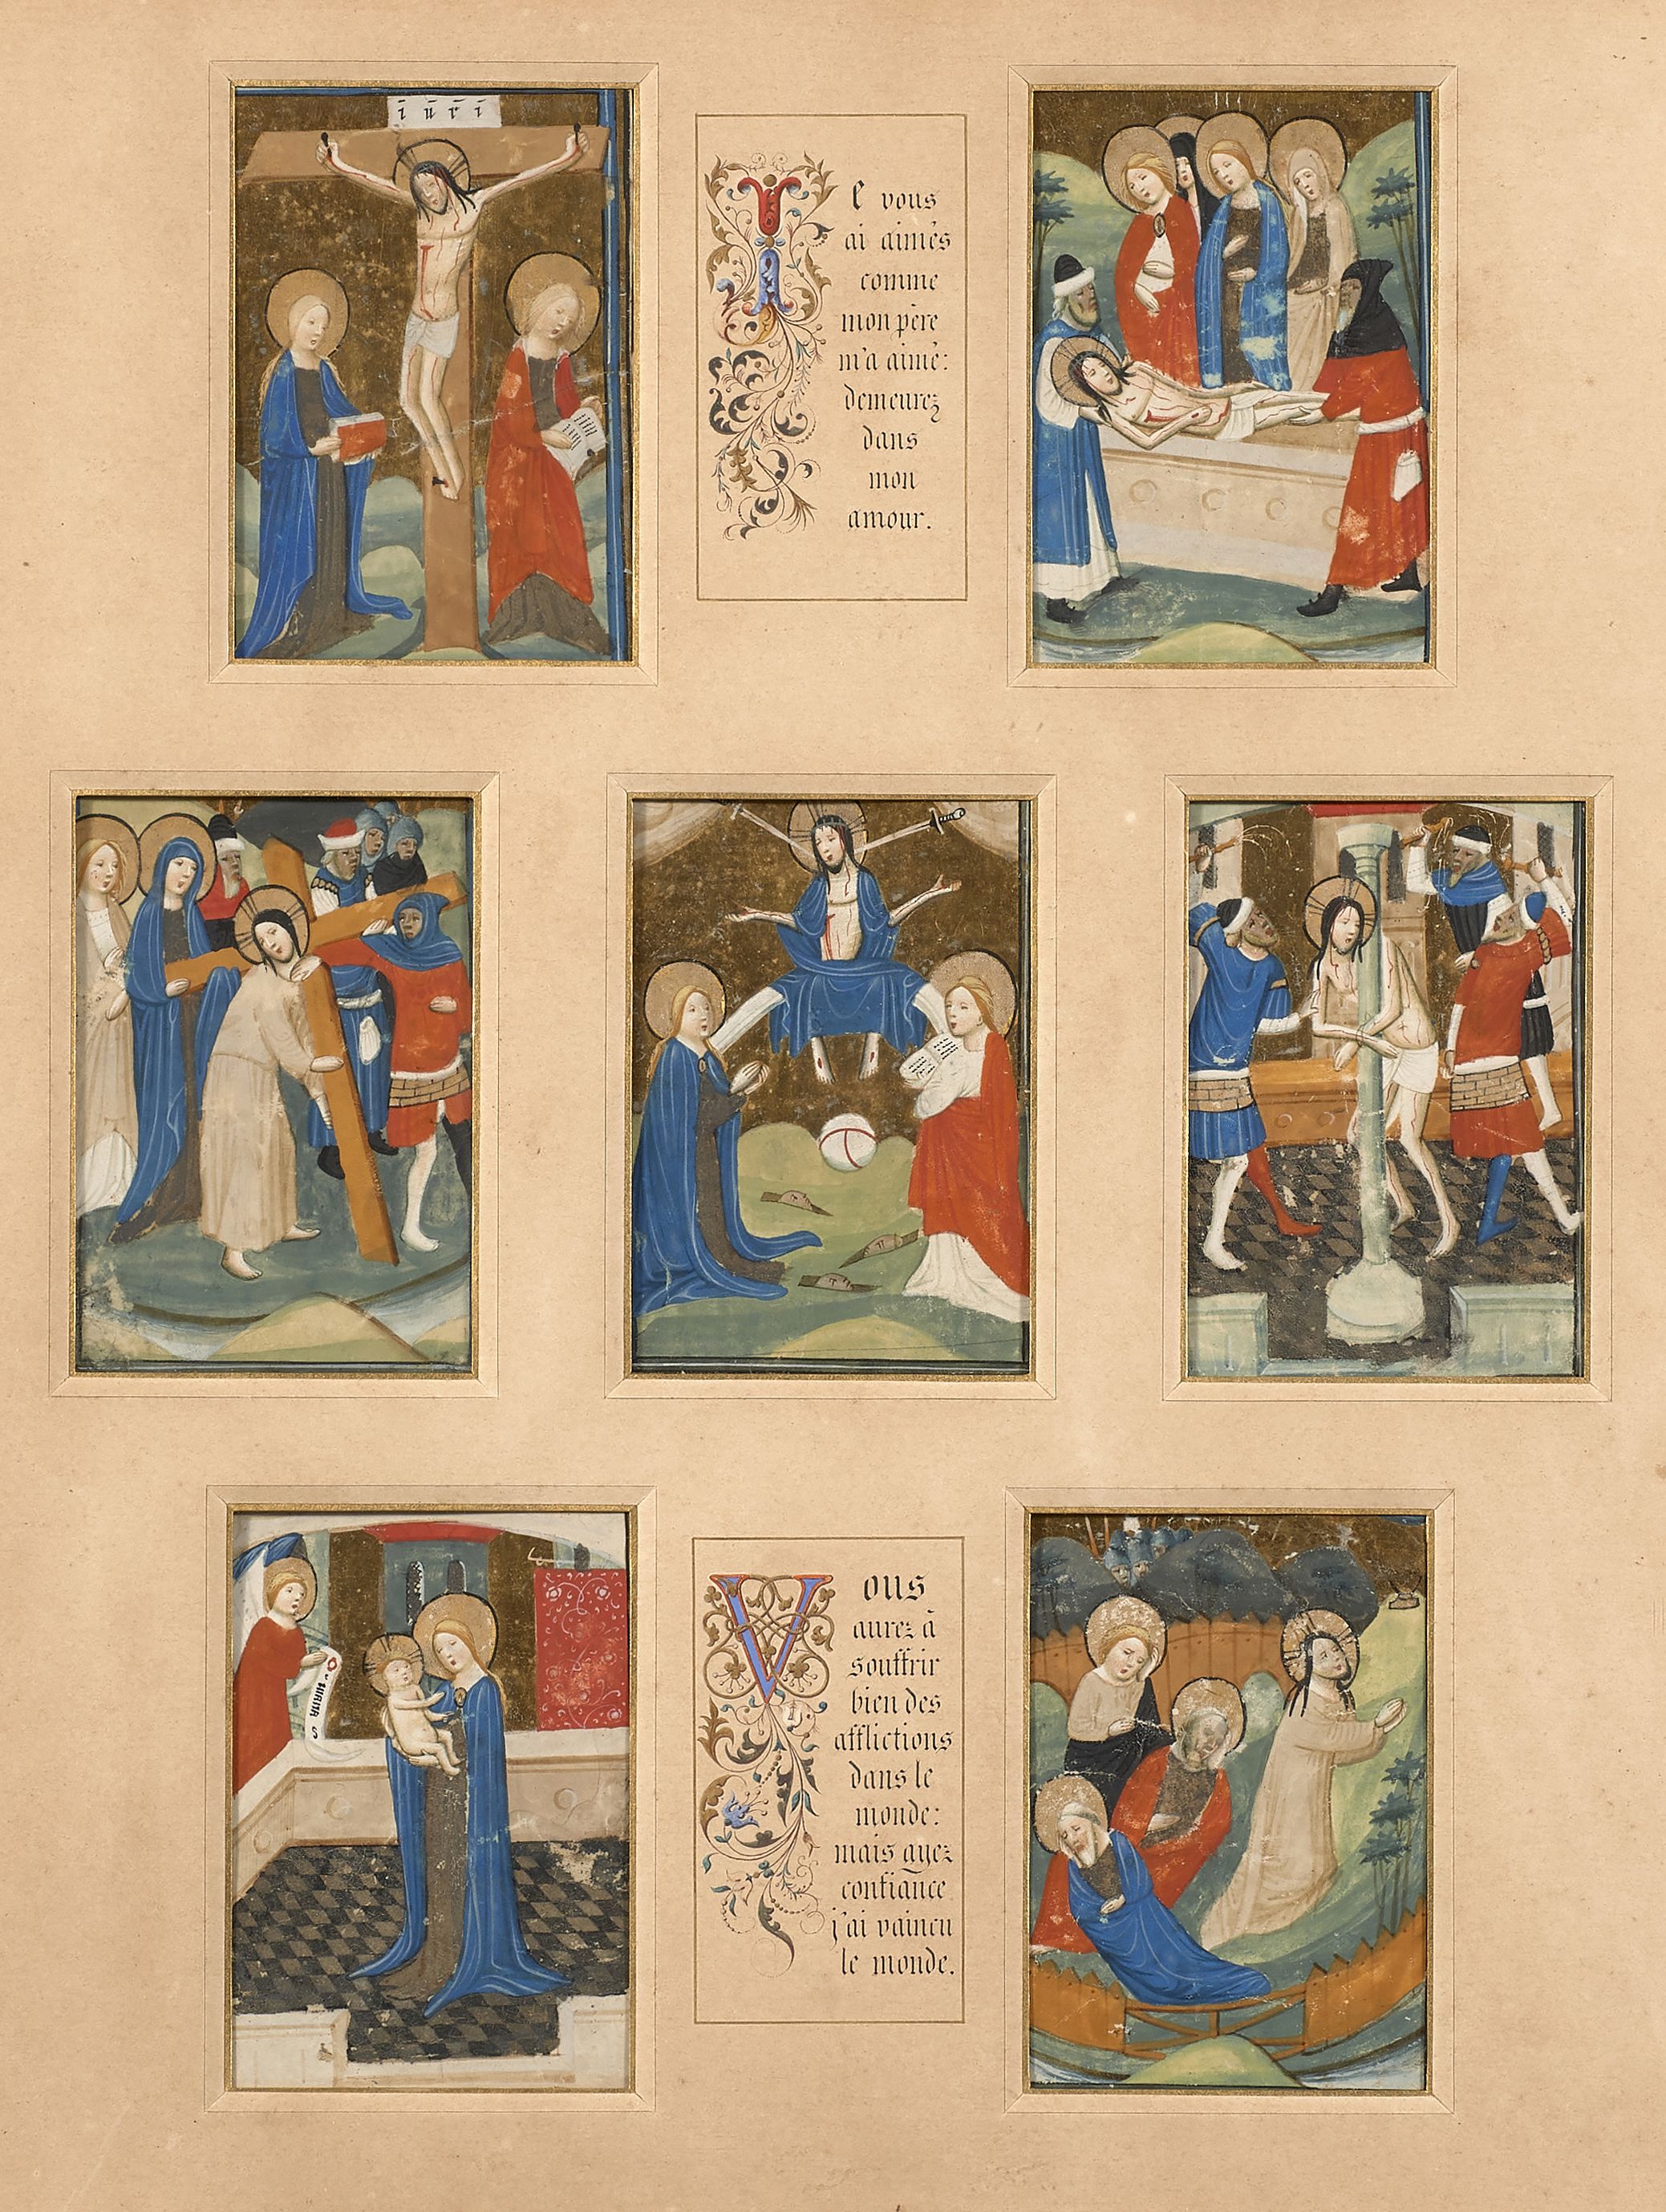 i n r i
Je vous
ai aimés
comme
mon père
m'a aimé:
demeurez
dans
mon
amour.
Vous
aurez à
souffrir
bien des
afflictions
dans le
monde:
mais ayez
confiance
j'ai vaincu
le monde.